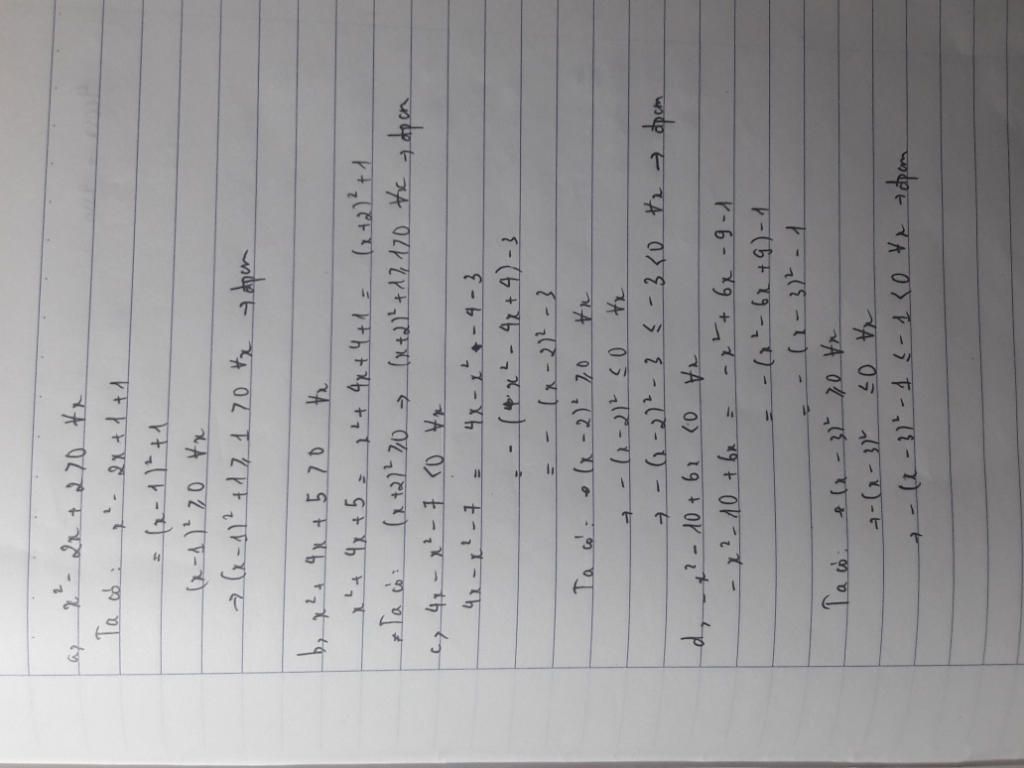 a, x² - 2x + 2 > 0 ∀x
Ta có: x² - 2x + 1 + 1
= (x-1)² + 1
(x-1)² ≥ 0 ∀x
→ (x-1)² + 1 ≥ 1 > 0 ∀x → đpcm
b, x² + 4x + 5 > 0 ∀x
x² + 4x + 5 = x² + 4x + 4 + 1 = (x+2)² + 1
Ta có: (x+2)² ≥ 0 → (x+2)² + 1 ≥ 1 > 0 ∀x → đpcm
c, 4x - x² - 7 < 0 ∀x
4x - x² - 7 = 4x - x² - 4 - 3
= - (x² - 4x + 4) - 3
= - (x-2)² - 3
Ta có: (x-2)² ≥ 0 ∀x
→ - (x-2)² ≤ 0 ∀x
→ - (x-2)² - 3 ≤ -3 < 0 ∀x → đpcm
d, -x² - 10 + 6x < 0 ∀x
- x² - 10 + 6x = - x² + 6x - 9 - 1
= - (x² - 6x + 9) - 1
= - (x-3)² - 1
Ta có: (x-3)² ≥ 0 ∀x
→ -(x-3)² ≤ 0 ∀x
→ - (x-3)² - 1 ≤ -1 < 0 ∀x → đpcm